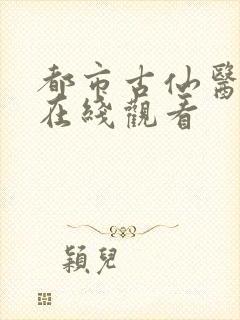 都市古仙醫
在綫觀看
穎兒